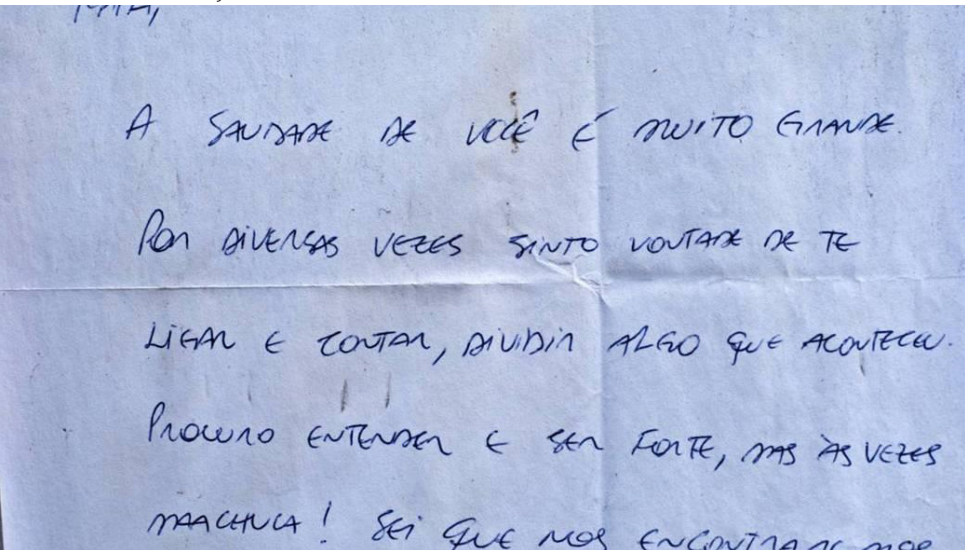 A SAUDADE DE VOCÊ É MUITO GRANDE.
POR DIVERSAS VEZES SINTO VONTADE DE TE
LIGAR E CONTAR, DIVIDIR ALGO QUE ACONTECEU.
PROCURO ENTENDER E SER FORTE, MAS ÀS VEZES
MACHUCA! SEI QUE NOS ENCONTRAREMOS